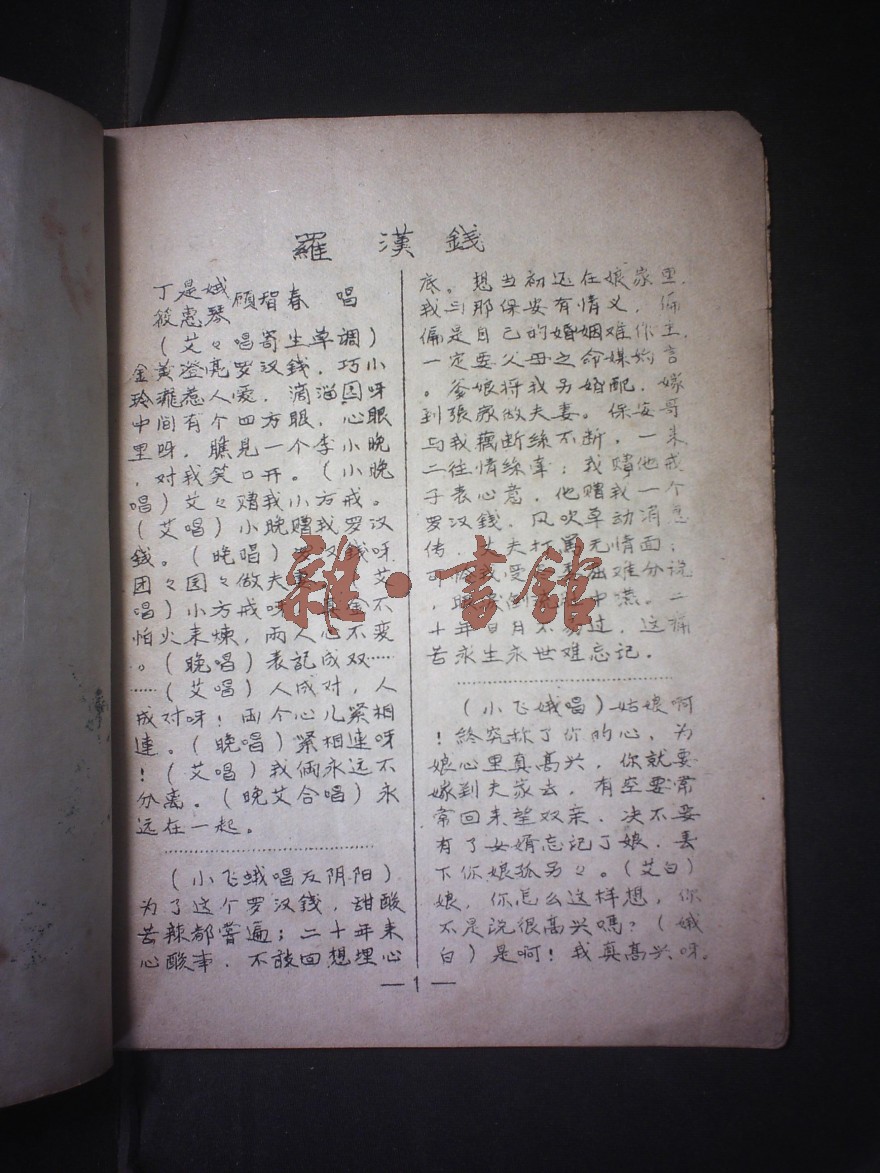 羅漢錢
丁是娥
筱惠琴
顾智春 唱
（艾々唱寄生草调）
金黄澄亮罗汉錢，巧小
玲珑惹人爱，滴溜圆呀
中间有个四方眼，心眼
里呀，瞧見一个李小晚
，对我笑口开。（小晚
唱）艾々赠我小方戒。
（艾唱）小晚赠我罗汉
錢。（晚唱）罗汉錢呀
团々圆々做夫妻 艾
唱）小方戒呀 真金不
怕火来煉，兩人心不变
。（晚唱）表記成双……
……（艾唱）人成对，人
成对呀！兩个心儿紧相
連。（晚唱）紧相連呀
！（艾唱）我倆永远不
分离。（晚艾合唱）永
远在一起。
（小飞蛾唱反阴阳）
为了这个罗汉錢，甜酸
苦辣都嘗遍；二十年来
心酸事．不敢回想埋心
底。想当初还在娘家里．
我与那保安有情义．偏
偏是自己的婚姻难作主．
一定要父母之命媒妁言
。爹娘将我另婚配．嫁
到張家做夫妻。保安哥
与我藕断絲不断．一来
二往情絲牽；我赠他戒
子表心意．他赠我一个
罗汉錢．风吹草动消息
传．丈夫打罵无情面；
我受 屈难分说
倒流 中嚥。二
十年日月不易过．这痛
苦永生永世难忘记．
（小飞娥唱）姑娘啊
！終究称了你的心．为
娘心里真高兴．你就要
嫁到夫家去．有空要常
常回来望双亲．决不要
有了女婿忘记了娘．丢
下你娘孤另々。（艾白）
娘．你怎么这样想．你
不是说很高兴嗎？（娥
白）是啊！我真高兴呀．
—1—
雜·書館